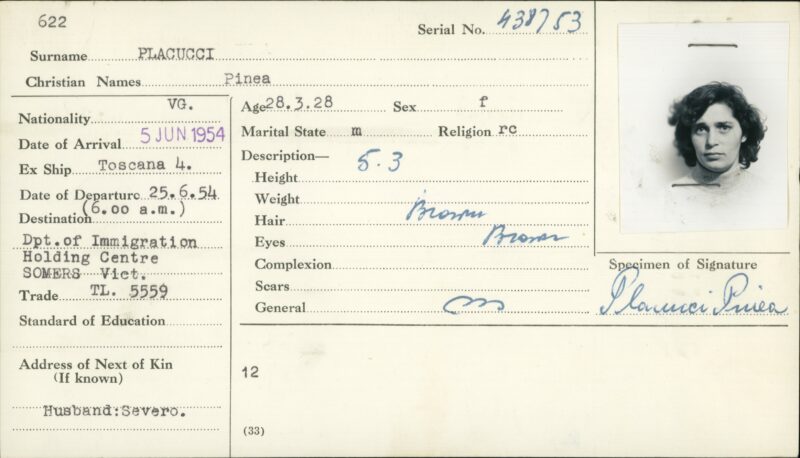 622
Serial No. 438753
Surname PLACUCCI
Christian Names Pinea
Nationality VG.
Date of Arrival 5 JUN 1954
Ex Ship Toscana 4.
Date of Departure 25.6.54
(6.00 a.m.)
Destination
Dpt.of Immigration
Holding Centre
SOMERS Vict.
Trade TL. 5559
Standard of Education
Address of Next of Kin
(If known)
Husband:Severo.
Age 28.3.28 Sex f
Marital State m Religion rc
Description—
Height 5.3
Weight
Hair Brown
Eyes Brown
Complexion
Scars
General
12
(33)
Specimen of Signature
Placucci Pinea